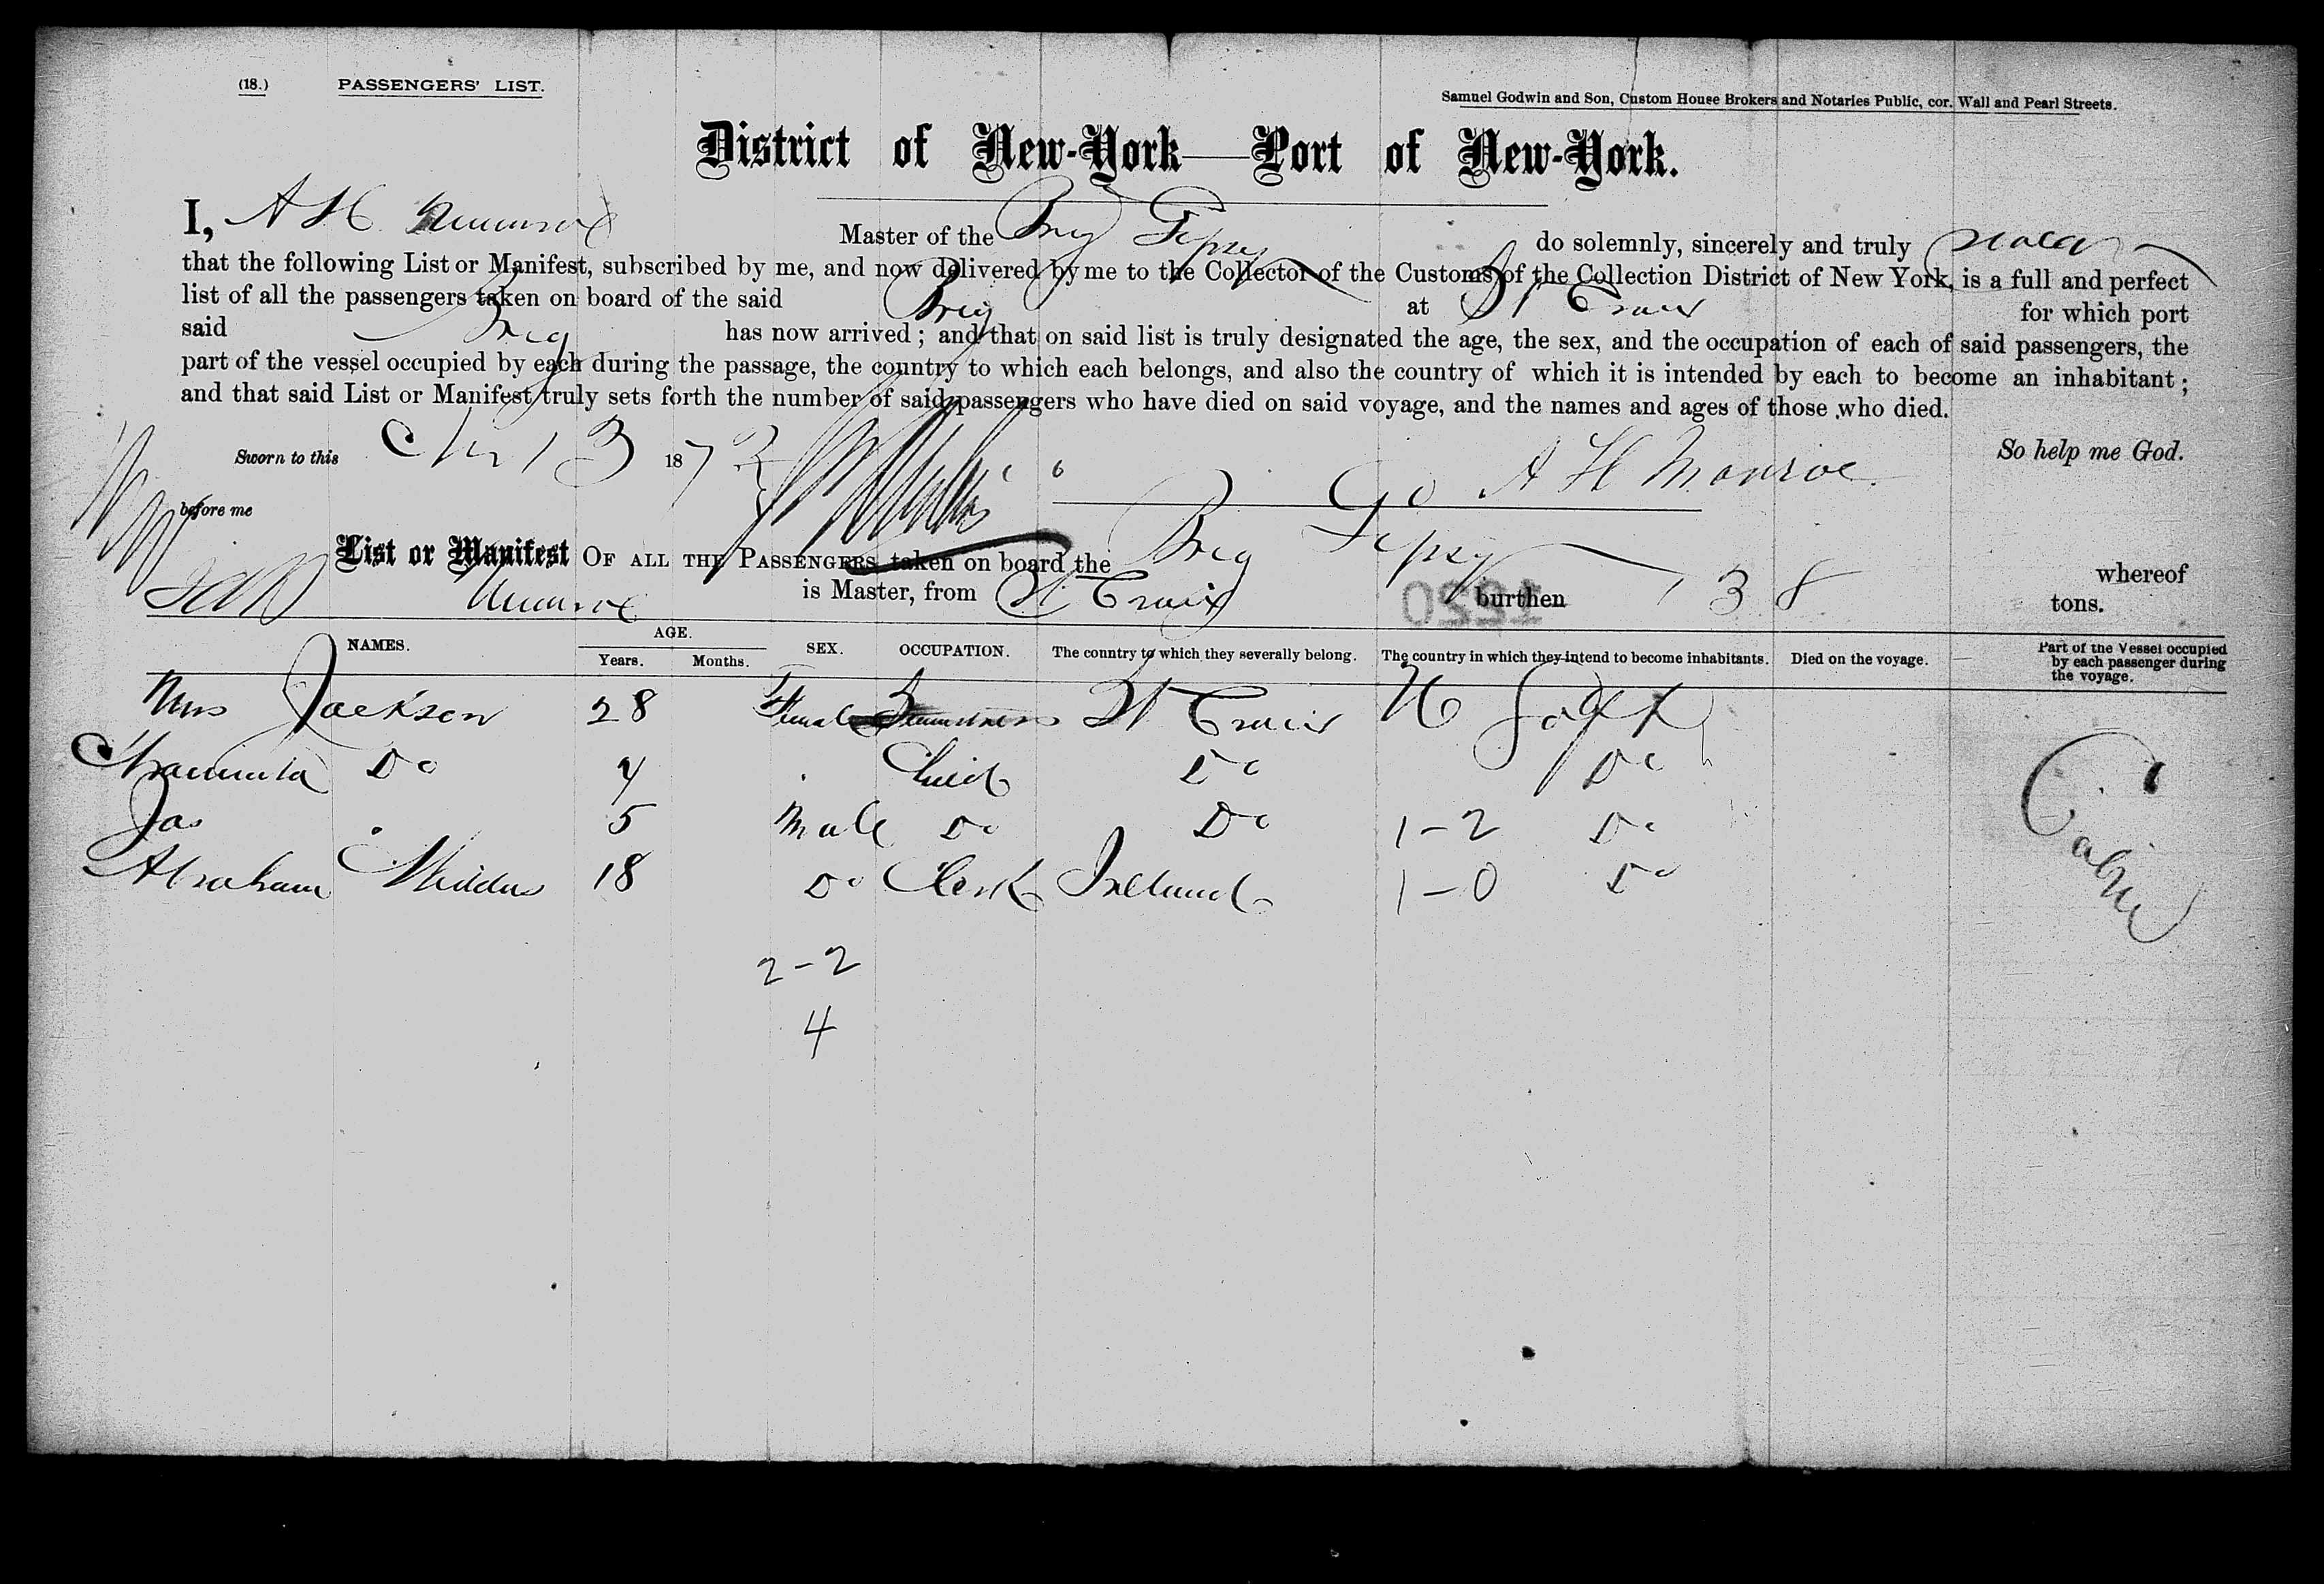 (18.) PASSENGERS' LIST.
Samuel Godwin and Son, Custom House Brokers and Notaries Public, cor. Wall and Pearl Streets.
District of New-York—Port of New-York.
I, A H Munroe Master of the Brig Gipsey do solemnly, sincerely and truly swear
that the following List or Manifest, subscribed by me, and now delivered by me to the Collector of the Customs of the Collection District of New York, is a full and perfect
list of all the passengers taken on board of the said Brig at St Croix for which port
said Brig has now arrived; and that on said list is truly designated the age, the sex, and the occupation of each of said passengers, the
part of the vessel occupied by each during the passage, the country to which each belongs, and also the country of which it is intended by each to become an inhabitant;
and that said List or Manifest truly sets forth the number of said passengers who have died on said voyage, and the names and ages of those who died.
Sworn to this 13 187 So help me God.
before me A H Monroe
List or Manifest OF ALL THE PASSENGERS taken on board the Brig Gipsy whereof
Munroe is Master, from St Croix burthen 138 tons.
NAMES. AGE. Years. Months. SEX. OCCUPATION. The country to which they severally belong. The country in which they intend to become inhabitants. Died on the voyage. Part of the Vessel occupied by each passenger during the voyage.
Mrs Jackson 28 Female St Croix
Do Child Do Do
Jas 5 Male Do Do 1-2 Do
Abraham 18 Do Clerk Ireland 1-0 Do
Cabin
2-2
4